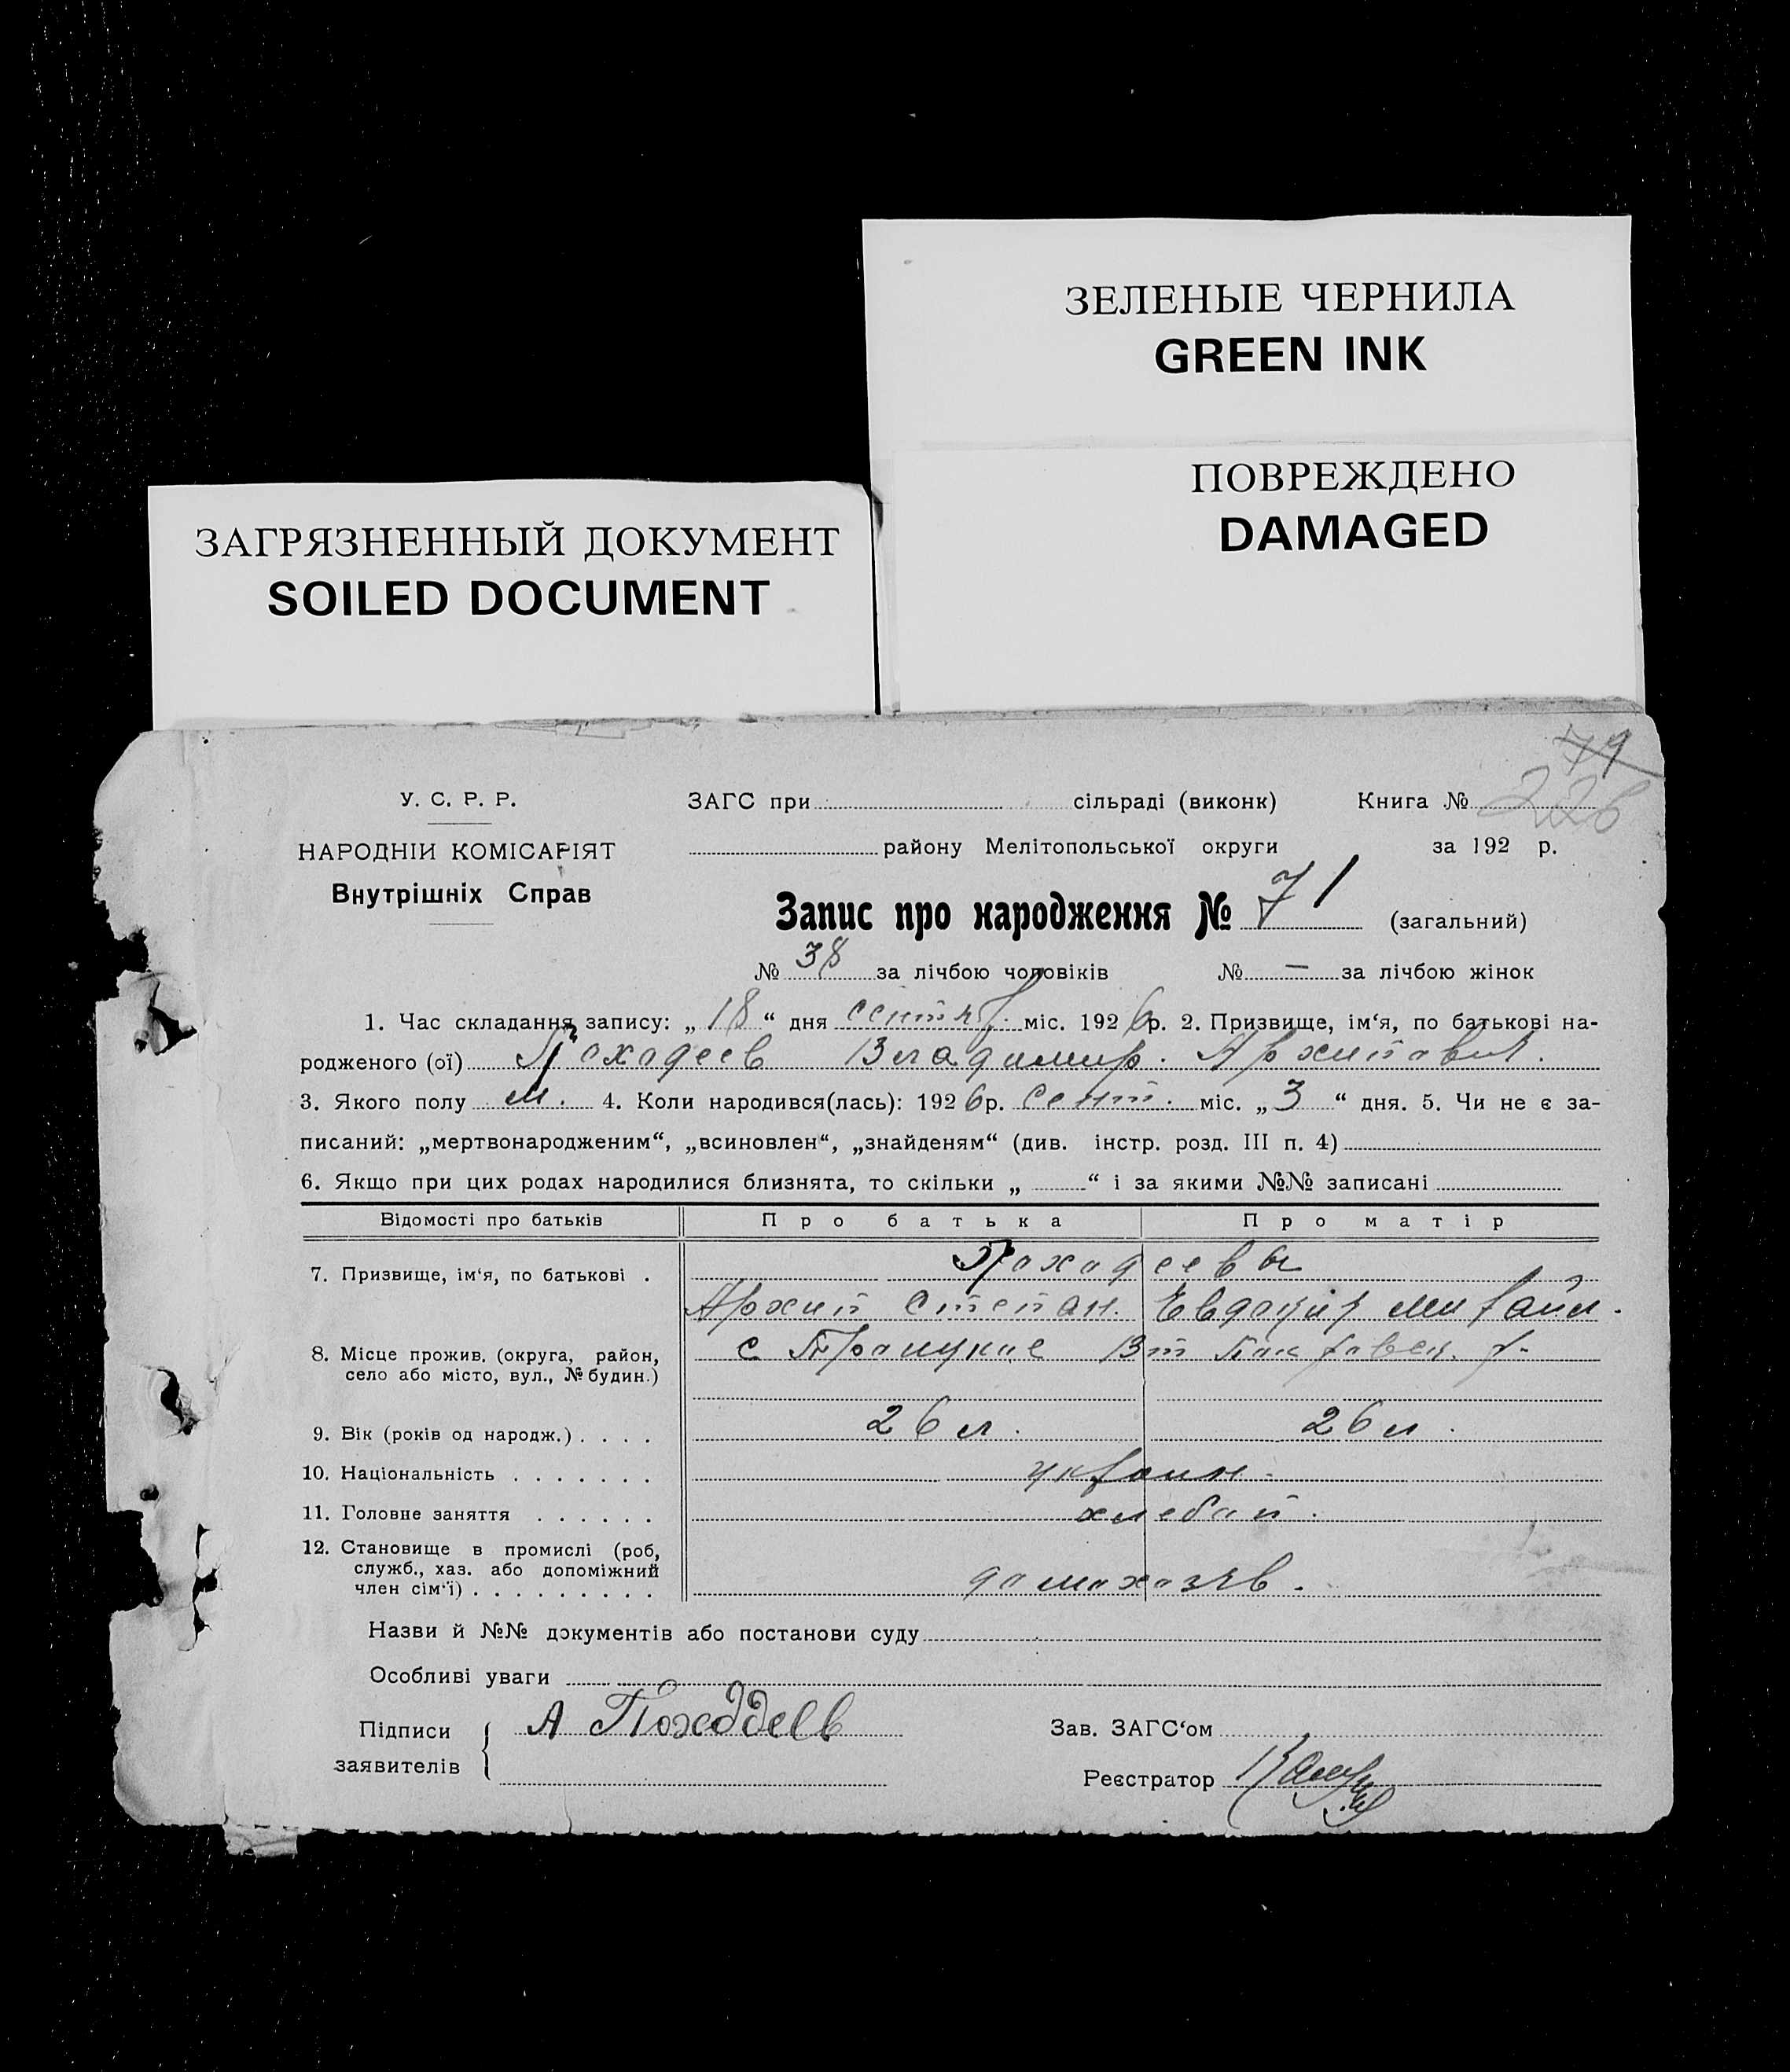 ЗЕЛЕНЫЕ ЧЕРНИЛА
GREEN INK
ПОВРЕЖДЕНО
DAMAGED
ЗАГРЯЗНЕННЫЙ ДОКУМЕНТ
SOILED DOCUMENT
79
226
У. С. Р. Р.
НАРОДНІЙ КОМІСАРІЯТ
Внутрішніх Справ
ЗАГС при сільраді (виконк) Книга №
району Мелітопольської округи за 192 р.
Запис про народження № 71 (загальний)
№ 38 за лічбою чоловіків № — за лічбою жінок
1. Час складання запису: „ 18 “ дня сентяб. міс. 1926 р. 2. Призвище, ім‘я, по батькові на-
родженого (ої) Походеев Владимир. Архипович.
3. Якого полу м. 4. Коли народився(лась): 1926 р. Сент. міс. „ 3 “ дня. 5. Чи не є за-
писаний: „мертвонародженим“, „всиновлен“, „знайденям“ (див. інстр. розд. III п. 4)
6. Якщо при цих родах народилися близнята, то скільки „ “ і за якими №№ записані
Відомості про батьків Про батька Про матір
7. Призвище, ім‘я, по батькові . Походеевы
Архип Степан. Евдокия Михайл.
8. Місце прожив. (округа, район, с Троицкое
село або місто, вул., № будин.)
9. Вік (років од народж.) . . . . 26 л. 26 л.
10. Національність . . . . . . . украин.
11. Головне заняття . . . . . . хлебоп.
12. Становище в промислі (роб,
служб., хаз. або допоміжний
член сім‘ї) . . . . . . . . . домохозяев.
Назви й №№ документів або постанови суду
Особливі уваги
Підписи
заявителів А Походдеев
Зав. ЗАГС‘ом
Реєстратор